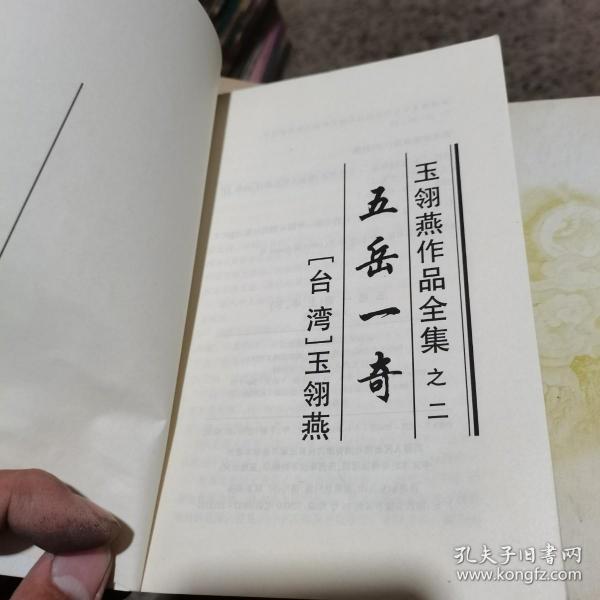 玉翎燕作品全集之二
五岳一奇
[台湾]玉翎燕
孔夫子旧书网
www.kongfz.com